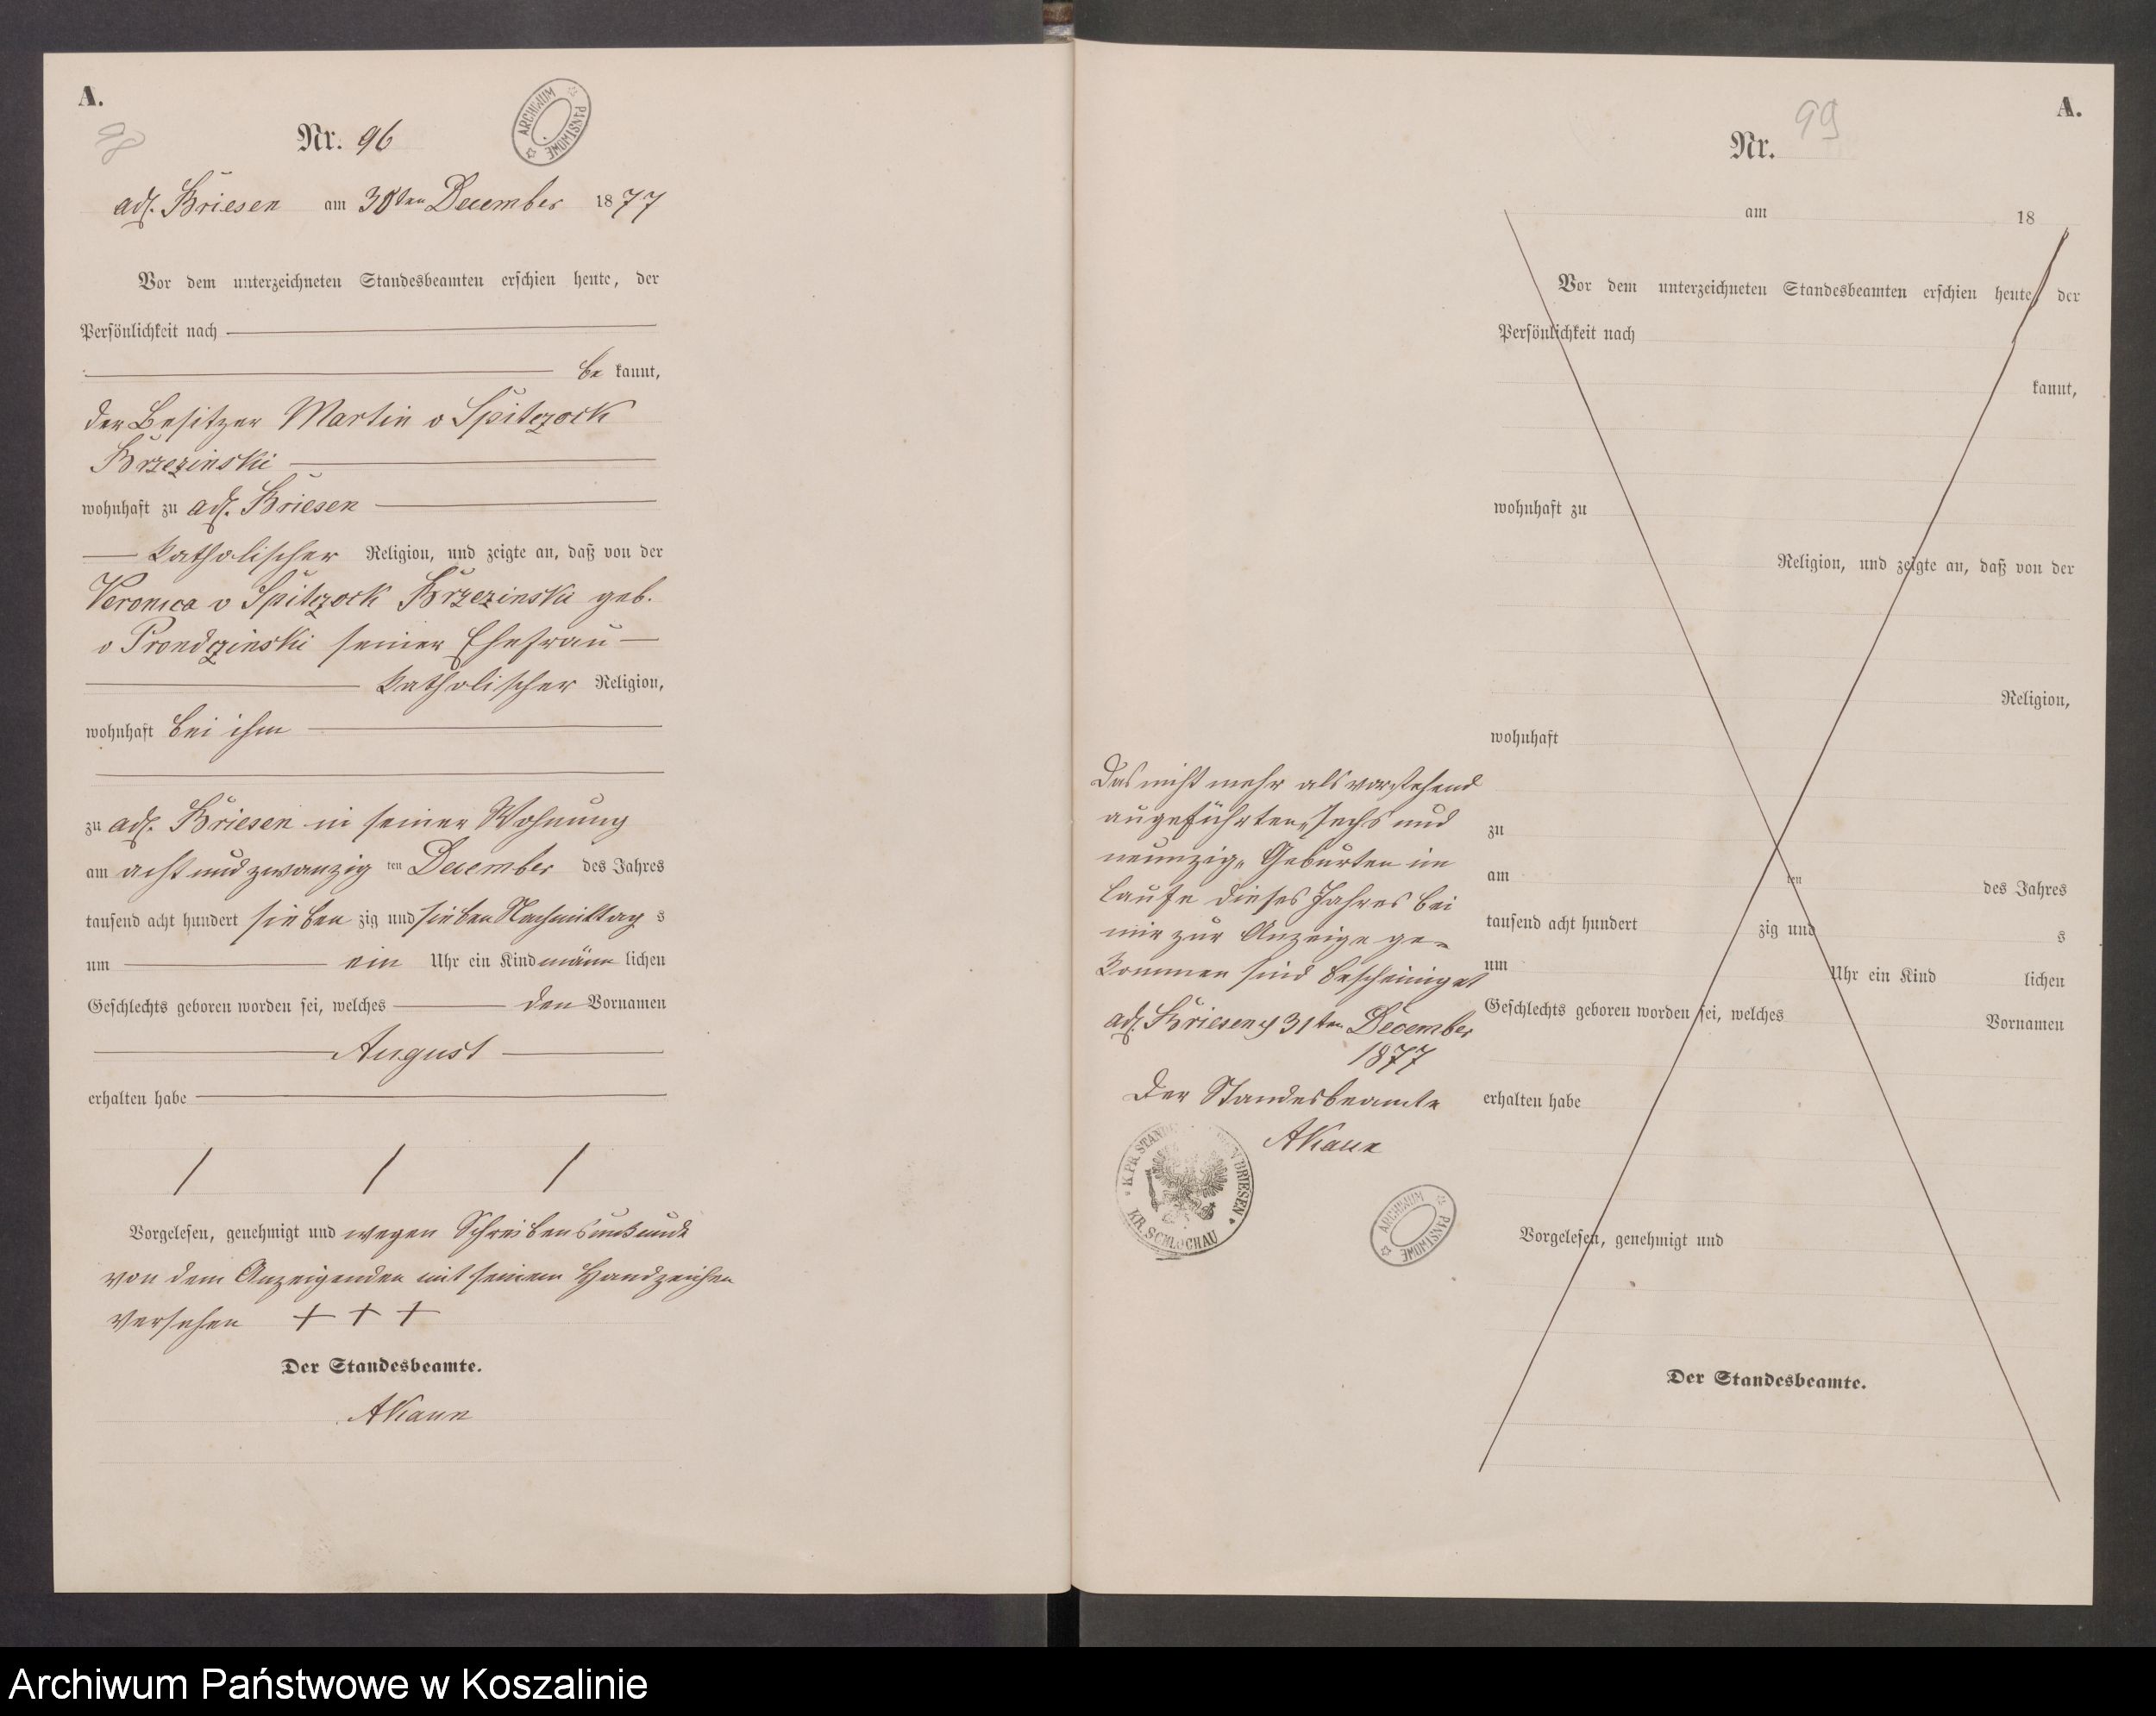 A.
98
Nr. 96
ARCHIWUM PAŃSTWOWE
adl. Briesen am 30ten December 1877
Vor dem unterzeichneten Standesbeamten erschien heute, der
Persönlichkeit nach
be kannt,
der Besitzer Martin v Spitczock
Brzezinski
wohnhaft zu adl. Briesen
katholischer Religion, und zeigte an, daß von der
Veronica v Spitczock Brzezinski geb.
v Prondczinski seiner Ehefrau
katholischer Religion,
wohnhaft bei ihm
zu adl. Briesen in seiner Wohnung
am acht und zwanzig ten December des Jahres
tausend acht hundert sieben zig und sieben Nachmittag s
um ein Uhr ein Kind männ lichen
Geschlechts geboren worden sei, welches den Vornamen
August
erhalten habe
Vorgelesen, genehmigt und wegen Schreibensunkunde
von dem Anzeigenden mit seinem Handzeichen
versehen + + +
Der Standesbeamte.
AKaun
A.
99
Nr.
am 18
Vor dem unterzeichneten Standesbeamten erschien heute, der
Persönlichkeit nach
kannt,
wohnhaft zu
Religion, und zeigte an, daß von der
Religion,
wohnhaft
zu
am ten des Jahres
tausend acht hundert zig und s
um Uhr ein Kind lichen
Geschlechts geboren worden sei, welches Vornamen
erhalten habe
Vorgelesen, genehmigt und
Der Standesbeamte.
Das nicht mehr als vorstehend
aufgeführten „sechs und
neunzig“ Geburten im
Laufe dieses Jahres bei
mir zur Anzeige ge-
kommen sind bescheiniget
adl. Briesen 31ten December
1877
Der Standesbeamte
AKaun
K. PR. STAND BRIESEN
KR. SCHLOCHAU
ARCHIWUM PAŃSTWOWE
Archiwum Państwowe w Koszalinie